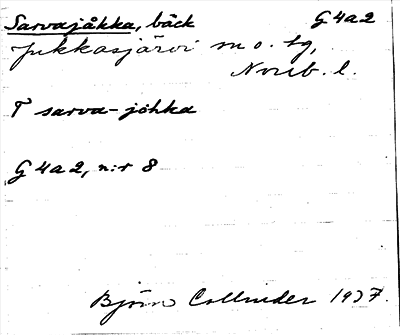 Sarvajåkka, bäck G4a2
Jukkasjärvi sn o. tg,
Norrb. l.
T sarva-johka
G4a2, n:r 8
Björn Collinder 1937.